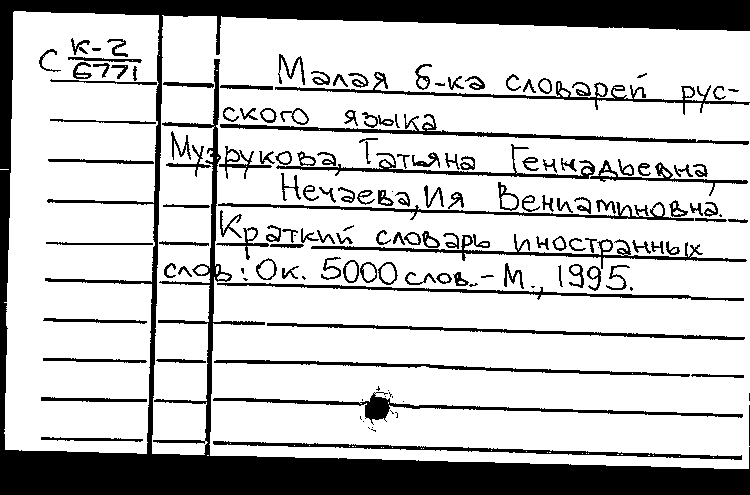 С К-2
6771
Малая б-ка словарей рус-
ского языка.
Музрукова, Татьяна Геннадьевна,
Нечаева, Ия Вениаминовна.
Краткий словарь иностранных
слов: Ок. 5000 слов. - М., 1995.